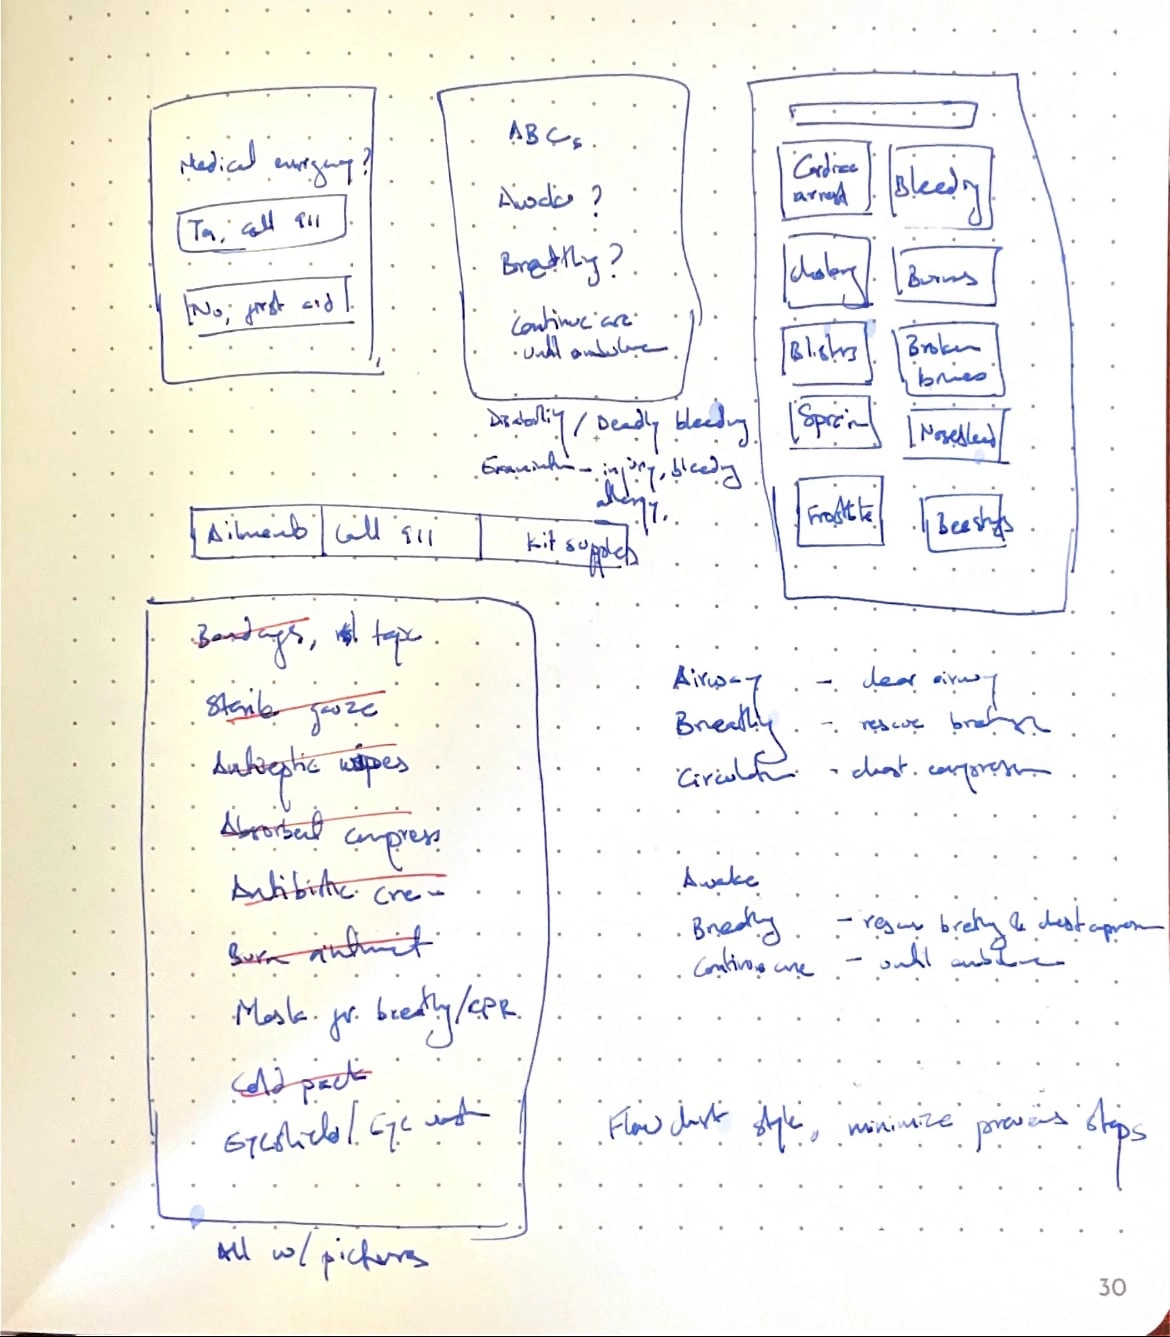 Medical emergency?
Yes, call 911
No, first aid
ABCs
Awake ?
Breathing ?
Continue care
until ambulance
Disability / Deadly bleeding
Examination - injury, bleeding
allergy.
Cardiac
arrest
Bleeding
choking
Burns
Blisters
Broken
bones
Sprain
Nosebleed
Frostbite
Beestings
Ailments
Call 911
Kit supplies
Bandages, tape
Sterile gauze
Antiseptic wipes
Absorbent compress
Antibiotic cream
Burn ointment
Mask for breathing/CPR
Cold pack
Eyeshield/ Eye wash
All w/ pictures
Airway - clear airway
Breathing - rescue breathing
Circulation - chest compression
Awake
Breathing - rescue breathing & chest compression
Continue care - until ambulance
Flow chart style, minimize previous steps
30